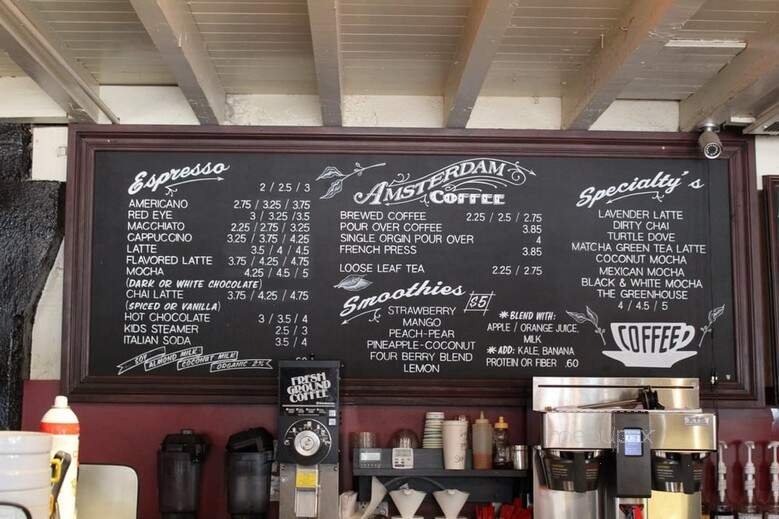 Espresso
2 / 2.5 / 3
AMERICANO 2.75 / 3.25 / 3.75
RED EYE 3 / 3.25 / 3.5
MACCHIATO 2.25 / 2.75 / 3.25
CAPPUCCINO 3.25 / 3.75 / 4.25
LATTE 3.5 / 4 / 4.5
FLAVORED LATTE 3.75 / 4.25
MOCHA 4.25 / 4.5 / 5
(DARK OR WHITE CHOCOLATE)
CHAI LATTE 3.75 / 4.25 / 4.75
(SPICED OR VANILLA)
HOT CHOCOLATE 3 / 3.5 / 4
KIDS STEAMER 2.5 / 3
ITALIAN SODA 3.5 / 4
SOY ALMOND MILK COCONUT MILK ORGANIC 2%
AMSTERDAM
COFFEE
BREWED COFFEE 2.25 / 2.5 / 2.75
POUR OVER COFFEE 3.85
SINGLE ORGIN POUR OVER 4
FRENCH PRESS 3.85
LOOSE LEAF TEA 2.25 / 2.75
Smoothies $5
STRAWBERRY
MANGO
PEACH-PEAR
PINEAPPLE-COCONUT
FOUR BERRY BLEND
LEMON
*BLEND WITH:
APPLE / ORANGE JUICE,
MILK
*ADD: KALE, BANANA
PROTEIN OR FIBER .60
Specialty's
LAVENDER LATTE
DIRTY CHAI
TURTLE DOVE
MATCHA GREEN TEA LATTE
COCONUT MOCHA
MEXICAN MOCHA
BLACK & WHITE MOCHA
THE GREENHOUSE
4 / 4.5 / 5
COFFEE
FRESH
GROUND
COFFEE